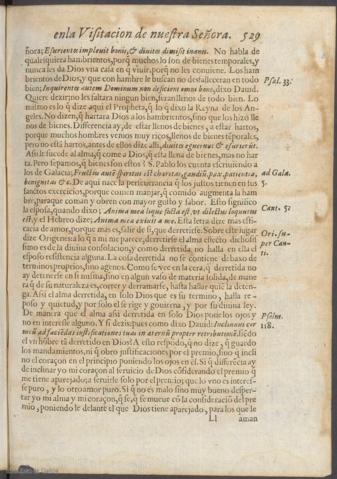 enla Visitacion de nuestra Señora. 529
ñora; Esurientes impleuit bonis, & diuites dimisit inanes. No habla de
qualesquiera hambrientos, porq̃ muchos lo son de bienes temporales, y
nunca les da Dios vna casa en q̃ viuir, porq̃ no les conuiene. Los ham
brientos de Dios, y que con hambre le buscan no desfalleceran en todo
bien; Inquirentes autem Dominum non deficient omni bono, dixo Dauid.
Psal. 33.
Quiere dezir, no les faltara ningun bien, seran llenos de todo bien. Lo
mismo es lo q̃ dize aqui el Propheta, q̃ lo q̃ dixo la Reyna de los An-
geles. No dizen, q̃ hartara Dios a los hambrientos, sino que los hizo lle
nos de bienes. Differencia ay, de estar llenos de bienes, a estar hartos,
porque muchos hombres vemos muy ricos, llenos de bienes tẽporales,
pero no està hartos, antes de ellos dize alli, diuites eguerunt & esurierũt.
Assi le sucede al alma, q̃ come a Dios, q̃ esta llena de bienes, mas no har
ta. Pero sepamos, q̃ bienes son estos? S. Pablo los cuenta escriuiendo a
los de Galacia; Fructus autẽ spiritus est charitas, gaudiũ, pax, patientia,
ad Gala.
benignitas &c. De aqui nace la perseuerancia q̃ los justos tienen en sus
5.
sanctos exercicios, porque comen manjar, q̃ comido augmenta la ham
bre, paraque coman y obren con mayor gusto y sabor. Esto significò
la esposa, quando dixo; Anima mea liquefacta est, vt dilectus loquutus
Cant. 5.
est, y el Hebreo dize; Anima mea exiuit a me. Esta letra dize mas effi-
cacia de amor, porque mas es, salir de si, que derretirse. Sobre este lugar
Ori. su-
dize Origenes a lo q̃ a mi me parece, derretirse el alma efecto dichoso
per Can-
sino es de la diuina consolacion, y como derretida no halla en ella el
ti.
esposo resistencia alguna. La cosa derretida no se contiene debaxo de
terminos proprios, sino agenos. Como se vee en la cera, q̃ derretida no
ay detenerse en si misma, sino en algun vaso de materia solida, de mane
ra q̃ de su naturaleza es, correr y derramarse, hasta hallar quiẽ la deten-
ga. Assi el alma derretida, en solo Dios que es su termino, halla re-
poso y quietud, y por solo el se rige y gouierna, y por su diuina ley.
De manera que el alma assi derretida en solo Dios pone los ojos y
no en interesse alguno. Y si dezis pues como dixo Dauid: Inclinaui cor
Psalm.
meũ ad faciẽdas iustificationes tuas in æternũ propter retributionẽ, siẽdo
118.
el vn hõbre tã derretido en Dios? A esto respõdo, q̃ no dize, q̃ guardò
los mandamientos, ni q̃ obro justificaciones por el premio, sino q̃ incli
no el coraçon en el principio poniendo los ojos en el. Si q̃ differẽcia ay
de inclinar yo mi coraçon al seruicio de Dios cõsiderando el premio q̃
me tiene aparejado; a seruirle solo por el premio; que lo vno es interes-
se puro, y lo otro amor puro. Si q̃ no es malo sino muy bueno desper-
tar yo mi alma y mi coraçon, q̃ se, q̃ se mueue cõ la consideraciõ del pre
mio, poniendo le delante el que Dios tiene aparejado, para los que le
Ll aman